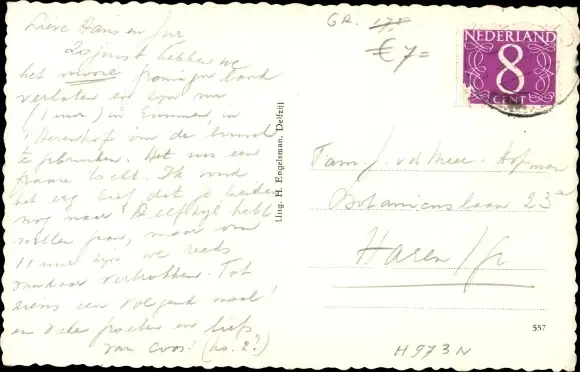 Lieve Hans en
Zojuist hebben we
het mooie Groninger land
verlaten en zijn nu
(1 uur) in Emmen, in
't Herenhof om de lunch
te gebruiken. Het was een
tocht. Ik vond
het erg lief dat je
nog naar Delfzijl hebt
willen gaan, maar om
11 uur zijn we reeds
vertrokken. Tot
ziens een volgend maal!
en vele groeten en liefs
van Coos! (no. 2?)
Uitg. H. Engelsman, Delfzijl
GR.
€ 7=
NEDERLAND
8
CENT
Fam. J. v.d. Meer - Hofman
Botanicuslaan 23a
Haren / Gr
557
H 973 N